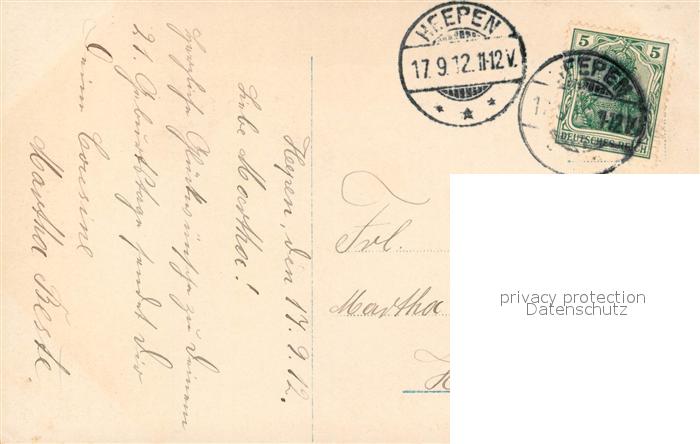 HEEPEN
17.9.12.11-12V.
5 5
DEUTSCHES REICH
HEEPEN
Heepen, den 17.9.12.
Liebe Martha!
Herzliche Glückwünsche zu Deinem
21. Geburtstage sendet Dir
Deine Cousine
Martha Beste.
Frl.
Martha
privacy protection
Datenschutz